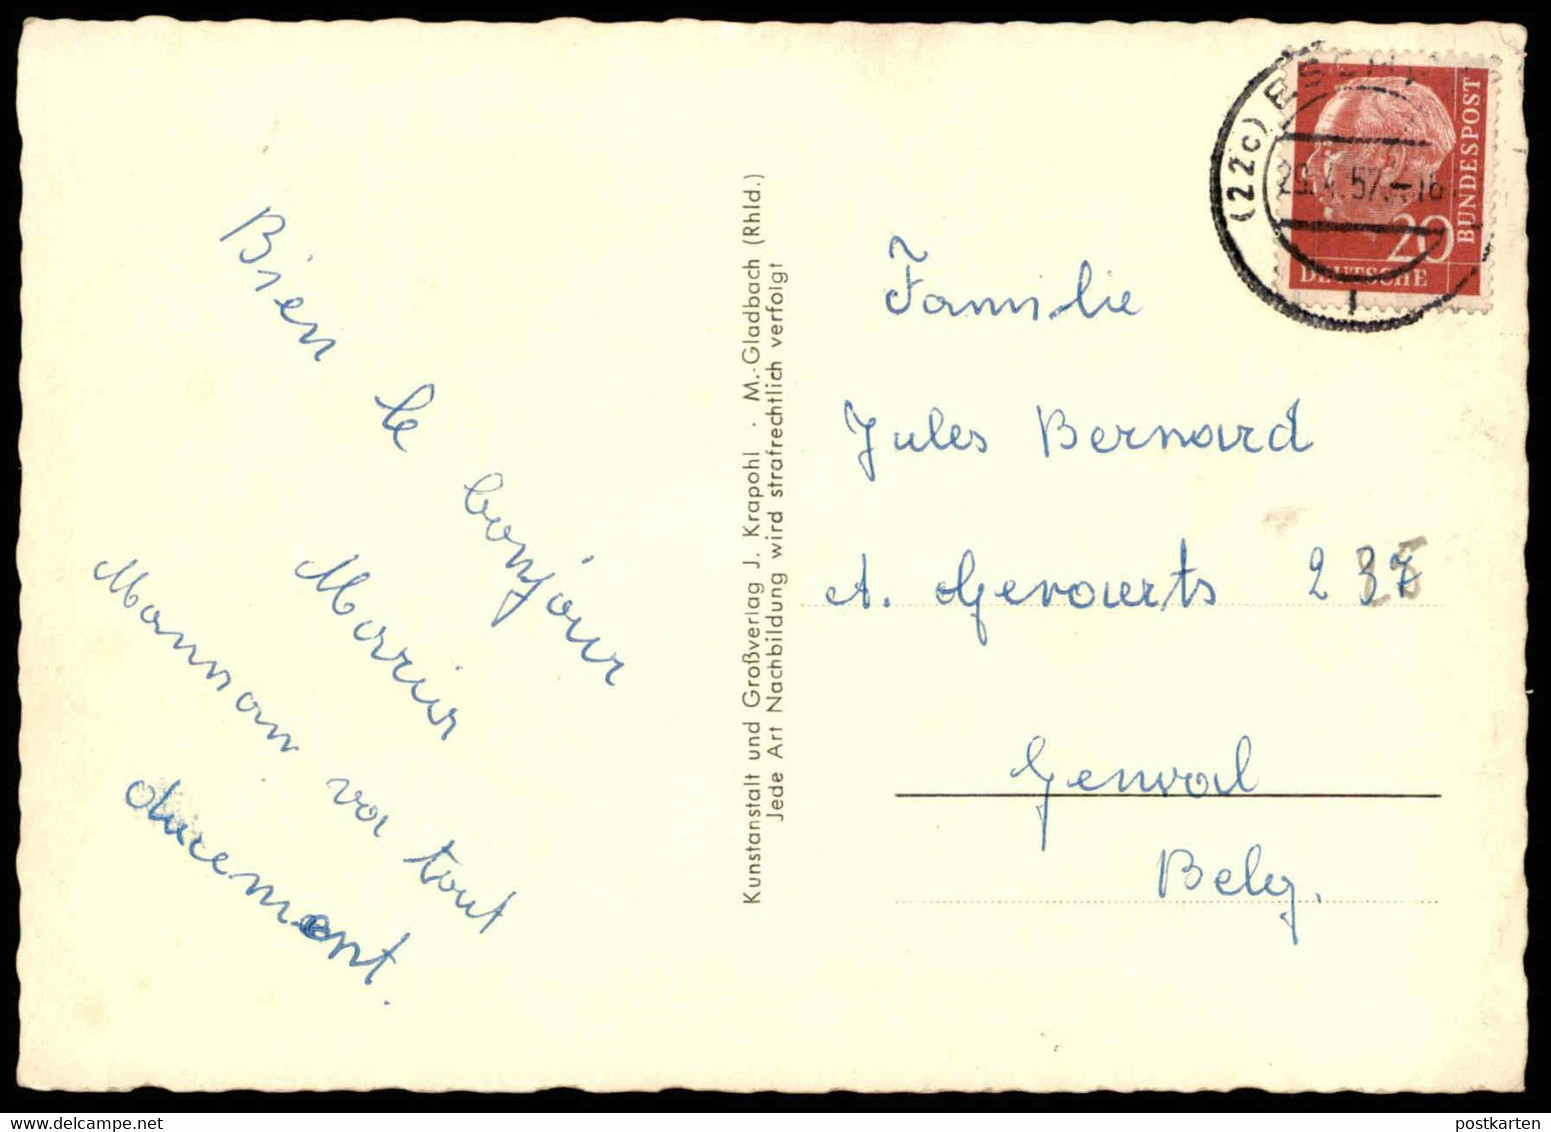 Bien le bonjour
Marrier
Mannan va tout
ducemont.
Kunstanstalt und Großverlag J. Krapohl · M.-Gladbach (Rhld.)
Jede Art Nachbildung wird strafrechtlich verfolgt
(22c) ESCH
29.4.57.-18
1
20
BUNDESPOST
DEUTSCHE
Familie
Jules Bernard
A. Gevaerts 237
Genval
Belg.
postkarten